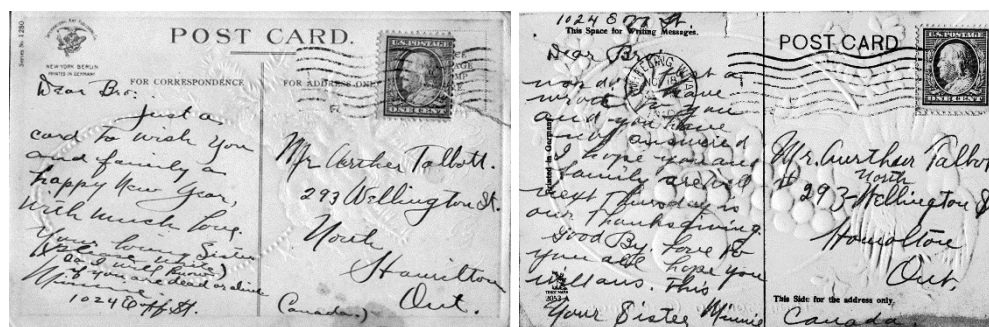 Series No. 1280
NEW YORK BERLIN
PRINTED IN GERMANY
POST CARD.
FOR CORRESPONDENCE
FOR ADDRESS ONLY
U.S. POSTAGE
ONE CENT
Dear Bro.
Just a
card to wish you
and family a
happy New Year,
with much love.
Your loving Sister
(Please write)
so I will know
if you are dead or alive
Minnie
1024 E St.
Mr Aurther Talbott.
293 Wellington St.
North
Hamilton
Ont.
(Canada.)
1024 E St.
This Space for Writing Messages.
POST CARD
U.S. POSTAGE
ONE CENT
Dear Bro
Just a
word I have
wrote to you
and you have
not answered
I hope you and
family are well
next Thursday is
our Thanksgiving.
Good By love to
you all hope you
will ans. this
Your Sister Minnie
Printed in Germany
TRADE MARK
2053-A
Mr. Aurther Talbot
North
293 Wellington S
Hamilton
Ont.
This Side for the address only.
Canada